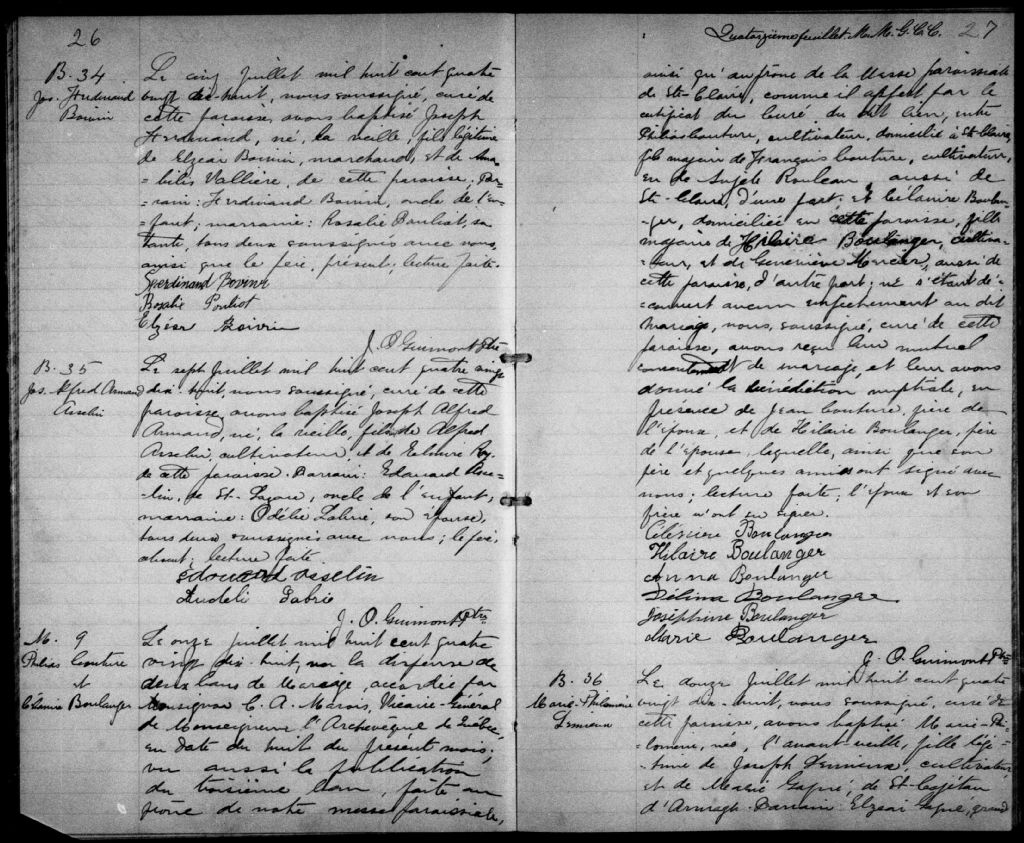 26
B. 34
Jos. Ferdinand
Boivin
Le cinq Juillet mil huit cent quatre
vingt dix-huit, nous soussigné, curé de
cette paroisse, avons baptisé Joseph
Ferdinand, né, la veille, fils légitime
de Elzéar Boivin, marchand, et de Ama-
-bilis Vallière, de cette paroisse. Par-
-rain: Ferdinand Boivin, oncle de l'en-
-fant; marraine: Rosalie Pouliot, sa
tante, tous deux soussignés avec nous,
ainsi que le père, présent, lecture faite.
Ferdinand Boivin
Rosalie Pouliot
Elzéar Boivin
J. O. Guimont Ptre
B. 35
Jos. Alfred Armand
Asselin
Le sept Juillet mil huit cent quatre vingt
dix-huit, nous soussigné, curé de cette
paroisse, avons baptisé Joseph Alfred
Armand, né, la veille, fils de Alfred
Asselin, cultivateur, et de Roy,
de cette paroisse. Parrain: Edouard Asse-
-lin, de St-Lazare, oncle de l'enfant;
marraine: Odélie Labrie, son épouse,
tous deux soussignés avec nous; le père,
absent; lecture faite
Edouard Asselin
Audeli Labrie
J. O. Guimont Ptre
M. 9
Philias Couture
et
Célanire Boulanger
Le onze Juillet mil huit cent quatre
vingt dix-huit, vu la dispense de
deux bans de Mariage, accordée par
Monsignor C. A. Marois, Vicaire-Général
de Monseigneur l'Archevêque de Québec,
en date du huit du présent mois;
vu aussi la publication
du troisième ban, faite au
prône de notre messe paroissiale,
Quatorzième feuillet. M. M. G. C. C. 27
ainsi qu'au prône de la Messe paroissiale
de Ste-Claire, comme il appert par le
certificat du Curé du dit lieu, entre
Philias Couture, cultivateur, domicilié à Ste-Claire,
fils majeur de François Couture, cultivateur,
et de Rouleau aussi de
Ste-Claire, d'une part; et Célanire Boulan-
-ger, domiciliée en cette paroisse, fille
majeure de Hilaire Boulanger, cultiva-
-teur, et de Geneviève Mercier, aussi de
cette paroisse, d'autre part; ne s'étant dé-
-couvert aucun empêchement au dit
mariage, nous, soussigné, curé de cette
paroisse, avons reçu leur mutuel
consentement de mariage, et leur avons
donné la bénédiction nuptiale, en
présence de Jean Couture, frère de
l'époux, et de Hilaire Boulanger, père
de l'épouse, laquelle, ainsi que son
père et quelques amis ont signé avec
nous; lecture faite; l'époux et son
frère n'ont su signer.
Boulanger
Hilaire Boulanger
Anna Boulanger
Délima Boulanger
Joséphine Boulanger
Marie Boulanger
J. O. Guimont Ptre
B. 36
Marie-Philomène
Lemieux
Le douze Juillet mil huit cent quatre
vingt dix-huit, nous soussigné, curé de
cette paroisse, avons baptisé Marie-Phi-
-lomène, née, l'avant-veille, fille légi-
-time de Joseph Lemieux, cultivateur
et de Marie, de St-Cajétan
d'Armagh. Parrain: Elzéar, grand